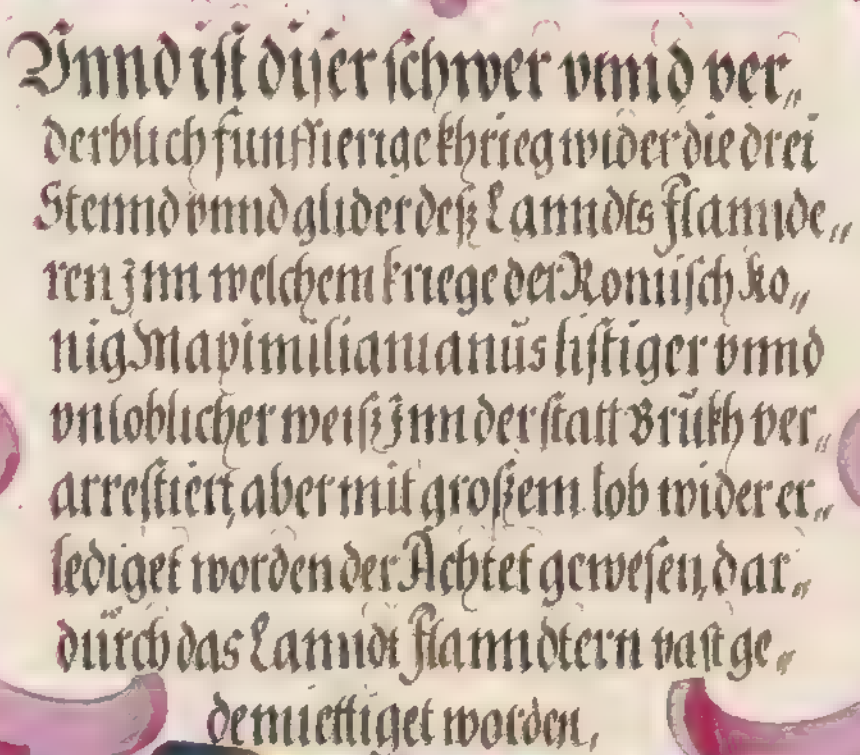 Vnnd ist diser schwer vnnd ver„
derblich funffierige khrieg wider die drei
Stennd vnnd glider deß Lanndts flannde„
ren Inn welchem kriege der Romisch ko„
nig Maximilianianus listiger vnnd
vnloblicher weiß Inn der statt Brükh ver„
arrestiert, aber mit großem lob wider er„
lediget worden der Achtet gewesen, dar„
dürch das Lanndt flanndtern vast ge„
demüettiget worden,